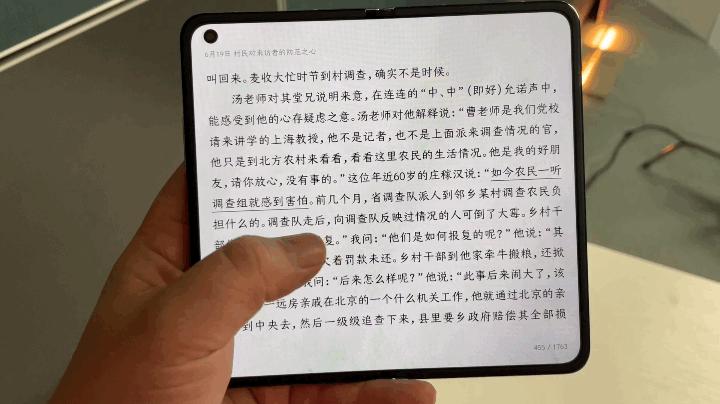 6月19日 村民对来访者的防范之心
叫回来。麦收大忙时节到村调查，确实不是时候。
汤老师对其堂兄说明来意，在连连的“中、中”（即好）允诺声中，
能感受到他的心存疑虑之意。汤老师对他解释说：“曹老师是我们党校
请来讲学的上海教授，他不是记者，也不是上面派来调查情况的官，
他只是到北方农村来看看，看看这里农民的生活情况。他是我的好朋
友，请你放心，没有事的。”这位年近60岁的庄稼汉说：“如今农民一听
调查组就感到害怕。前几个月，省调查队派人到邻乡某村调查农民负
担什么的。调查队走后，向调查队反映过情况的人可倒了大霉。乡村干
部 复。”我问：“他们是如何报复的呢？”他说：“其
着罚款未还。乡村干部到他家牵牛搬粮，还掀
我问：“后来怎么样呢？”他说：“此事后来闹大了，该
一远房亲戚在北京的一个什么机关工作，他就通过北京的亲
到中央去，然后一级级追查下来，县里要乡政府赔偿其全部损
455 / 1763